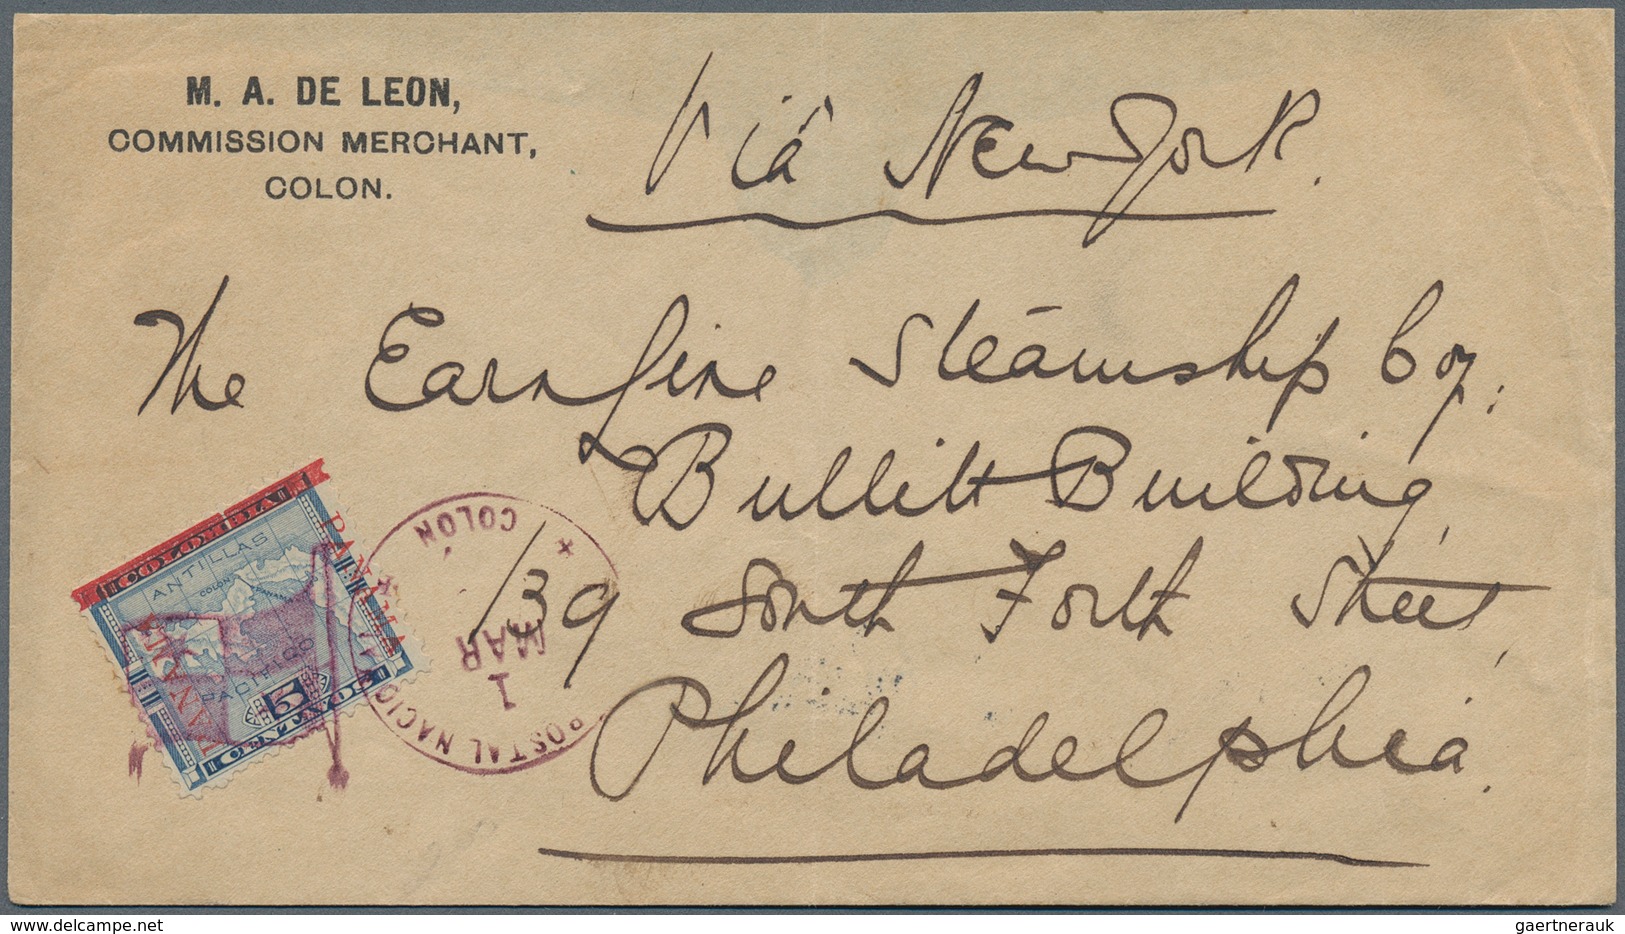 M. A. DE LEON,
COMMISSION MERCHANT,
COLON.
Viá New York.
The Earn Line Steamship Coy.
Bullitt Building,
139 South Forth Street,
Philadelphia.
COLOMBIA
ANTILLAS
COLON
PANAMA
PACIFICO
PANAMA
PANAMA
5
POSTAL NACIO
1
MAR
COLON
delcampe.net
gaertnerauk